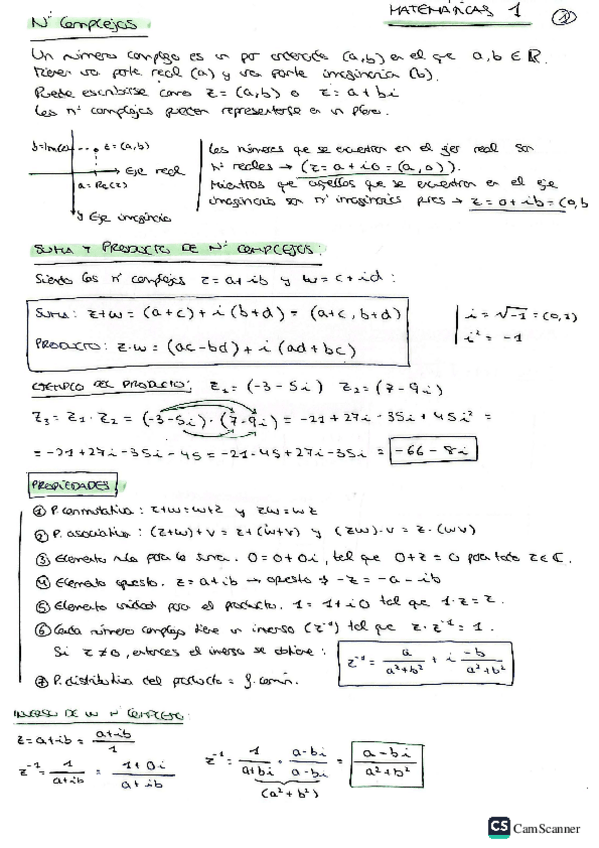 MATEMÁTICAS 1 ①
Nº Complejos
Un número complejo es un par ordenado (a,b) en el que a,b ∈ ℝ.
Tienen una parte real (a) y una parte imaginaria (b).
Puede escribirse como z=(a,b) o z=a+bi
Los nº complejos pueden representarse en un plano.
b=Im(z) z=(a,b)
Eje real
a=Re(z)
y Eje imaginario
Los números que se encuentran en el eje real son
Nº reales → (z=a+i0=(a,0)).
Mientras que aquellos que se encuentran en el eje
imaginario son nº imaginarios puros → z=0+ib=(0,b
SUMA Y PRODUCTO DE Nº COMPLEJOS:
Siendo los nº complejos z=a+ib y w=c+id:
SUMA: z+w=(a+c)+i(b+d)=(a+c,b+d)
PRODUCTO: z·w=(ac-bd)+i(ad+bc)
i=√-1=(0,1)
i²=-1
EJEMPLO DEL PRODUCTO: z₁=(-3-5i) z₂=(7-9i)
z₃=z₁·z₂=(-3-5i)·(7-9i)=-21+27i-35i+45i²=
=-21+27i-35i-45=-21-45+27i-35i=-66-8i
PROPIEDADES
① P. conmutativa: z+w=w+z y zw=wz
② P. asociativa: (z+w)+v=z+(w+v) y (zw)·v=z·(wv)
③ Elemento nulo para la suma. 0=0+0i, tal que 0+z=0 para todo z∈ℂ.
④ Elemento opuesto. z=a+ib → opuesto → -z=-a-ib
⑤ Elemento unidad para el producto. 1=1+i0 tal que 1·z=z.
⑥ Cada número complejo tiene un inverso (z⁻¹) tal que z·z⁻¹=1.
Si z≠0, entonces el inverso se obtiene: z⁻¹=a/(a²+b²)+i -b/(a²+b²)
⑦ P. distributiva del producto = f. común.
INVERSO DE UN Nº COMPLEJO:
z=a+ib=(a+ib)/1
z⁻¹=1/(a+ib)=(1+0i)/(a+ib)
z⁻¹=1/(a+bi)·(a-bi)/(a-bi)=(a-bi)/(a²+b²)
(a²+b²)
CS CamScanner